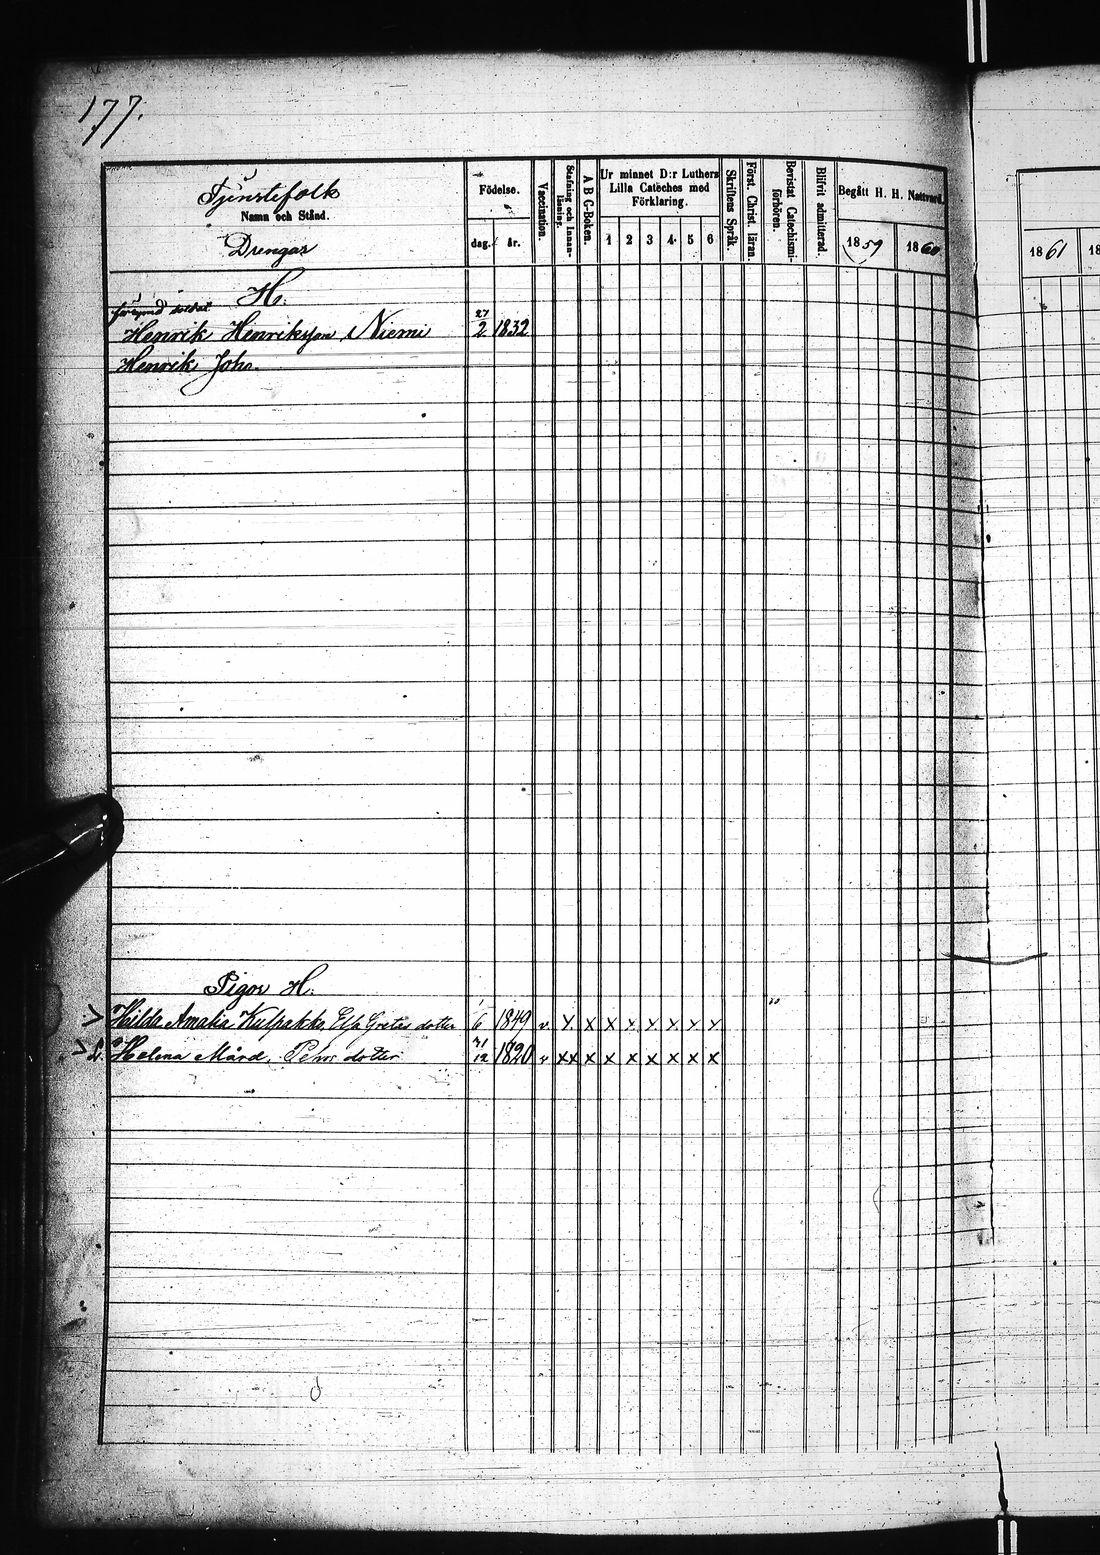 177.
Tjenstefolk
Namn och Stånd.
Drengar
Födelse.
dag. år.
Vaccination.
Stafning och Innan-läsning.
A B C-Boken.
Ur minnet D:r Luthers
Lilla Cateches med
Förklaring.
1 2 3 4 5 6
Skriftens Språk.
Först. Christ. läran.
Bevistat Catechismi-förhören.
Blifvit admitterad.
Begått H. H. Nattvard.
1859 1860
1861 18
H.
27
Henrik Henriksson Niemi 2 1832
Henrik Johs.
Pigor H.
Hilda Amalia Kulpakko, Elsa Gretas dotter 6 1849 v. x x x x x x x x
31
Helena Mård, Pehrs dotter 12 1820 v xx x x x x x x x